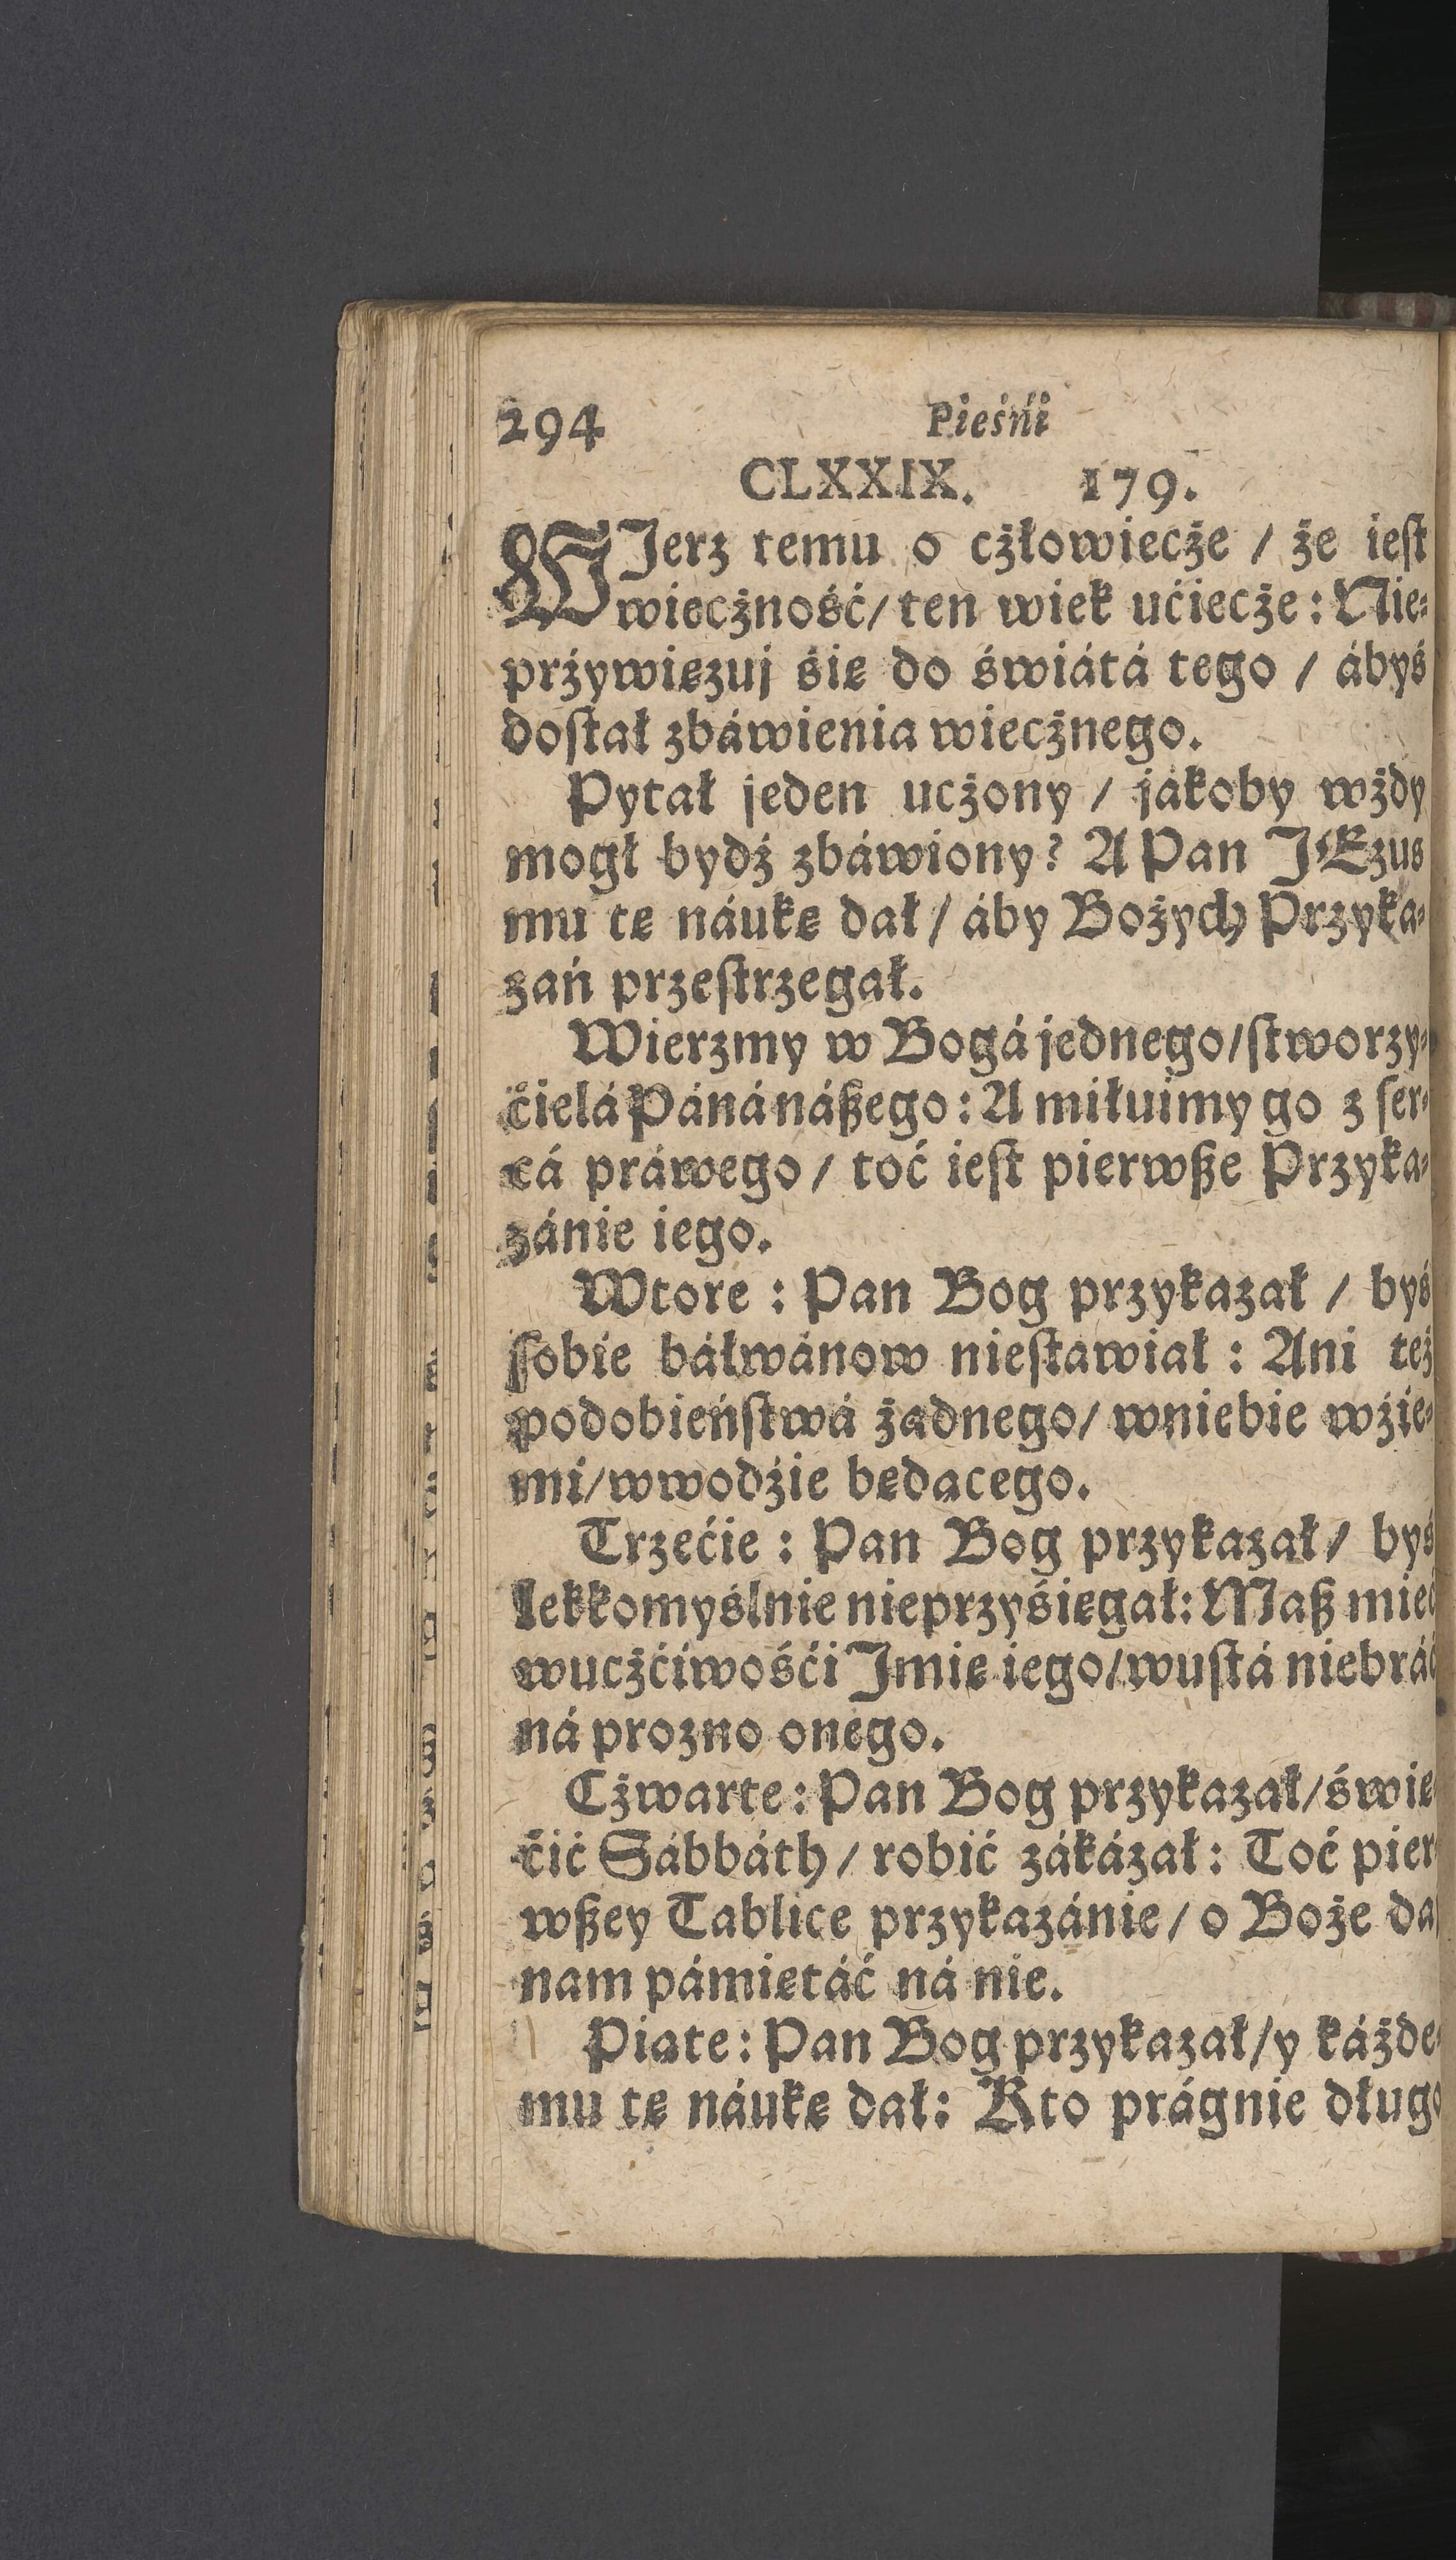 294 Pieśńi
CLXXIX. 179.
WJerz temu o cżłowiecże / że ieſt
wiecżność/ ten wiek ućiecże: Nie⸗
prżywięzuj śię do świátá tego / ábyś
doſtał zbáwienia wiecżnego.
Pytał jeden ucżony / jákoby wżdy
mogł bydź zbáwiony? A Pan JEzus
mu tę náukę dał / áby Bożych Przyka⸗
zań przeſtrzegał.
Wierzmy w Bogá jednego/ſtworzy⸗
ćielá Páná náßego: A miłuimy go z ſer⸗
cá práwego / toć ieſt pierwße Przyka⸗
zánie iego.
Wtore : Pan Bog przykazał / byś
ſobie báłwánow nieſtawiał : Ani też
podobieńſtwá żadnego/ wniebie wźie⸗
mi/wwodźie będącego.
Trzećie : Pan Bog przykazał/ byś
lekkomyślnie nieprzyśięgał: Maß mieć
wucżćiwośći Jmię iego/wuſtá niebráć
ná prozno onego.
Cżwarte: Pan Bog przykazał/świę
ćić Sábbáth / robić zákázał: Toć pier
wßey Tablice przykazánie / o Boże daj
nam pámiętáć ná nie.
Piąte: Pan Bog przykazał/y káżde⸗
mu tę náukę dał: Kto prágnie długo